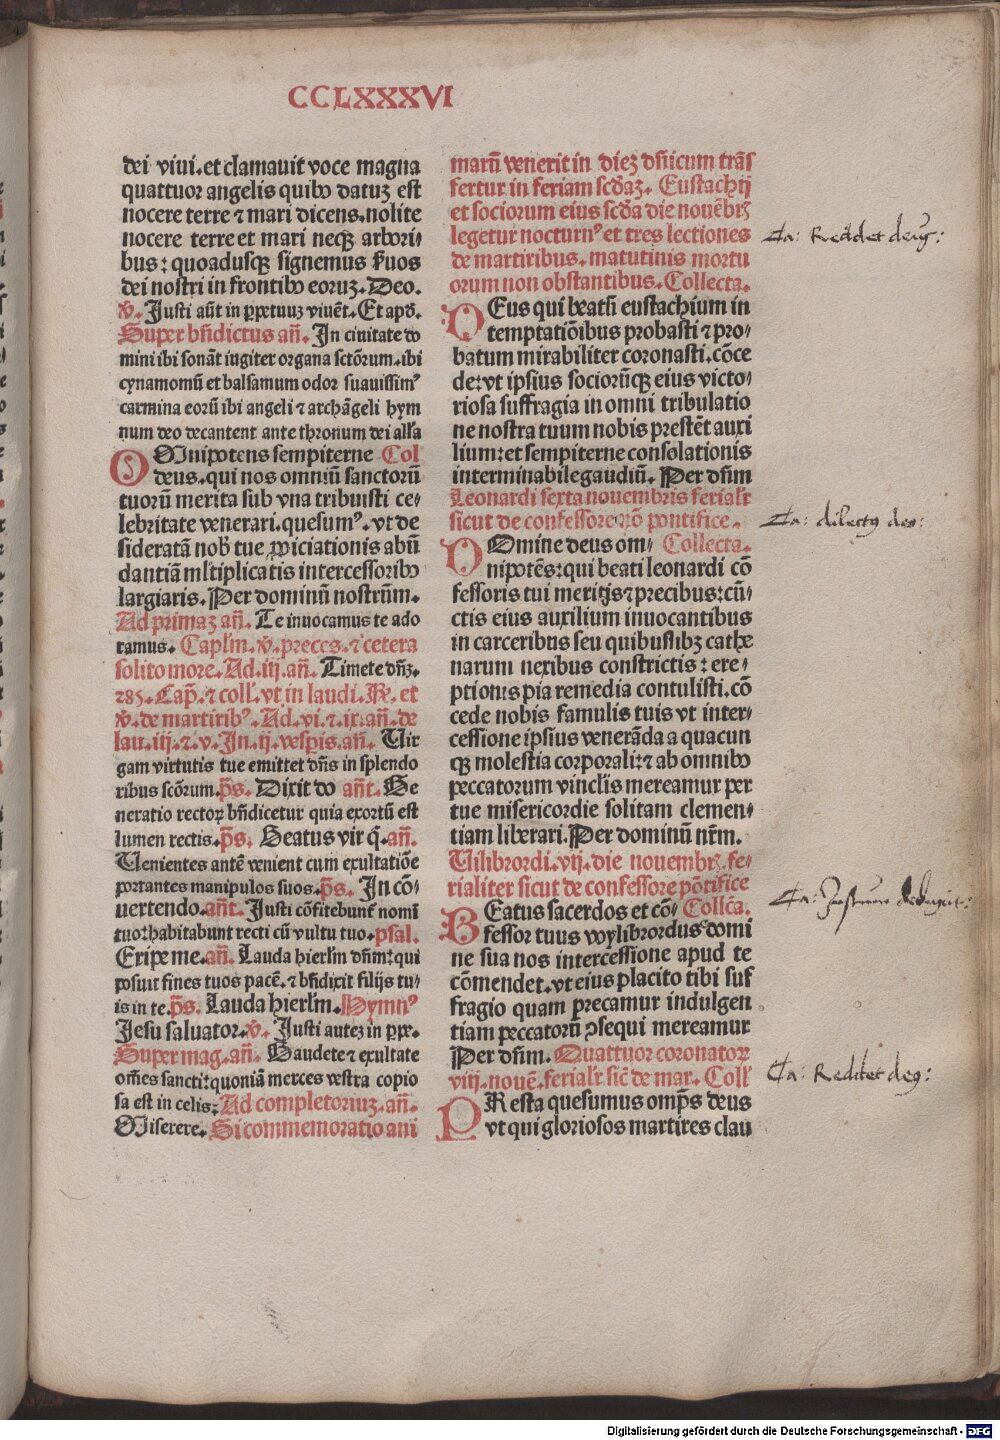 CCLXXXVI
dei viui. et clamauit voce magna
quattuor angelis quibꝰ datuꝫ est
nocere terre ⁊ mari dicens. nolite
nocere terre et mari neqꝫ arbori⸗
bus: quoadusqꝫ signemus ẜuos
dei nostri in frontibꝰ eoruꝫ. Deo.
v̄. Justi aūt in ꝑpetuuꝫ viuēt. Et apđ.
Super bn̄dictus an̄. In ciuitate do
mini ibi sonāt iugiter organa sctōrum. ibi
cynamomū et balsamum odor suauissimꝰ
carmina eorū ibi angeli ⁊ archāgeli hym
num deo decantent ante thronum dei all'a
OMnipotens sempiterne Col
deus. qui nos omniū sanctorū
tuorū merita sub vna tribuisti ce⸗
lebritate venerari. quesumꝰ. vt de
sideratā nob̄ tue ꝓpiciationis abū
dantiā ml'tiplicatis intercessoribꝰ
largiaris. Per dominū nostrūm.
Ad primaꝫ an̄. Te inuocamus te ado
ramus. Capl'm. v̄. preces. ⁊ cetera
solito more. Ad. iij. an̄. Timete dn̄ꝫ.
285. Cap̄. ⁊ coll'. vt in laudi. R̄. et
v̄. de martiribꝰ. Ad. vi. ⁊ ix. an̄. de
lau. iij. ⁊. v. In. ij. vesꝑis. an̄. Uir
gam virtutis tue emittet dn̄s in splendo
ribus scōrum. p̄s. Dixit do an̄t. Ge
neratio rectoꝝ bn̄dicetur quia exortū est
lumen rectis. p̄s. Beatus vir q̄. an̄.
Uenientes antē venient cum exultatiōe
portantes manipulos suos. p̄s. In cō⸗
uertendo. an̄t. Justi cōfitebunt᷑ nomi
tuo: habitabunt recti cū vultu tuo. psal.
Eripe me. an̄. Lauda hierl'm dn̄m: qui
posuit fines tuos pacē. ⁊ bn̄dixit filijs tu⸗
is in te. p̄s. Lauda hierl'm. Hymnꝰ
Jesu saluator. v̄. Justi auteꝫ in ꝑpe.
Super mag. an̄. Gaudete ⁊ exultate
om̄es sancti: quoniā merces vestra copio
sa est in celis: Ad completoriuꝫ. an̄.
Miserere. Si commemoratio ani
marū venerit in dieꝫ dn̄icum trās
fertur in feriam scđaꝫ. Eustachij
et sociorum eius scđa die nouēbrꝫ
legetur nocturnꝰ et tres lectiones
de martiribus. matutinis mortu
orum non obstantibus. Collecta.
DEus qui beatū eustachium in
temptatiōibus probasti ⁊ pro⸗
batum mirabiliter coronasti. cōce
de: vt ipsius sociorūqꝫ eius victo⸗
riosa suffragia in omni tribulatio
ne nostra tuum nobis prestēt auxi
lium: et sempiterne consolationis
interminabile gaudiū. Per dn̄m
Leonardi sexta nouembris ferialr̄
sicut de confessore nō pontifice.
DOmine deus om⸗ Collecta.
nipotēs: qui beati leonardi cō
fessoris tui meritꝭs ⁊ precibus: cū⸗
ctis eius auxilium inuocantibus
in carceribus seu quibuslibꝫ cathe
narum nexibus constrictis: ere⸗
ptionis pia remedia contulisti. cō
cede nobis famulis tuis vt inter⸗
cessione ipsius venerāda a quacun
qꝫ molestia corporali: ⁊ ab omnibꝰ
peccatorum vinclis mereamur per
tue misericordie solitam clemen⸗
tiam liberari. Per dominū nr̄m.
Uilibrordi. vij. die nouembrꝫ. fe⸗
rialiter sicut de confessore pōtifice
BEatus sacerdos et cō⸗ Collc̄a.
fessor tuus wylibrordus domi
ne sua nos intercessione apud te
cōmendet. vt eius placito tibi suf
fragio quam precamur indulgen
tiam peccatorū ꝯsequi mereamur
Per dn̄m. Quattuor coronatoꝝ
viij. nouē. ferialr̄ sic̄ de mar. Coll'
PResta quesumus omp̄s deus
vt qui gloriosos martires clau
Ca: Reddet deus:
Ca: dilectus deo:
Ca: Justum deduxit:
Ca: Reddet deꝰ:
Digitalisierung gefördert durch die Deutsche Forschungsgemeinschaft - DFG